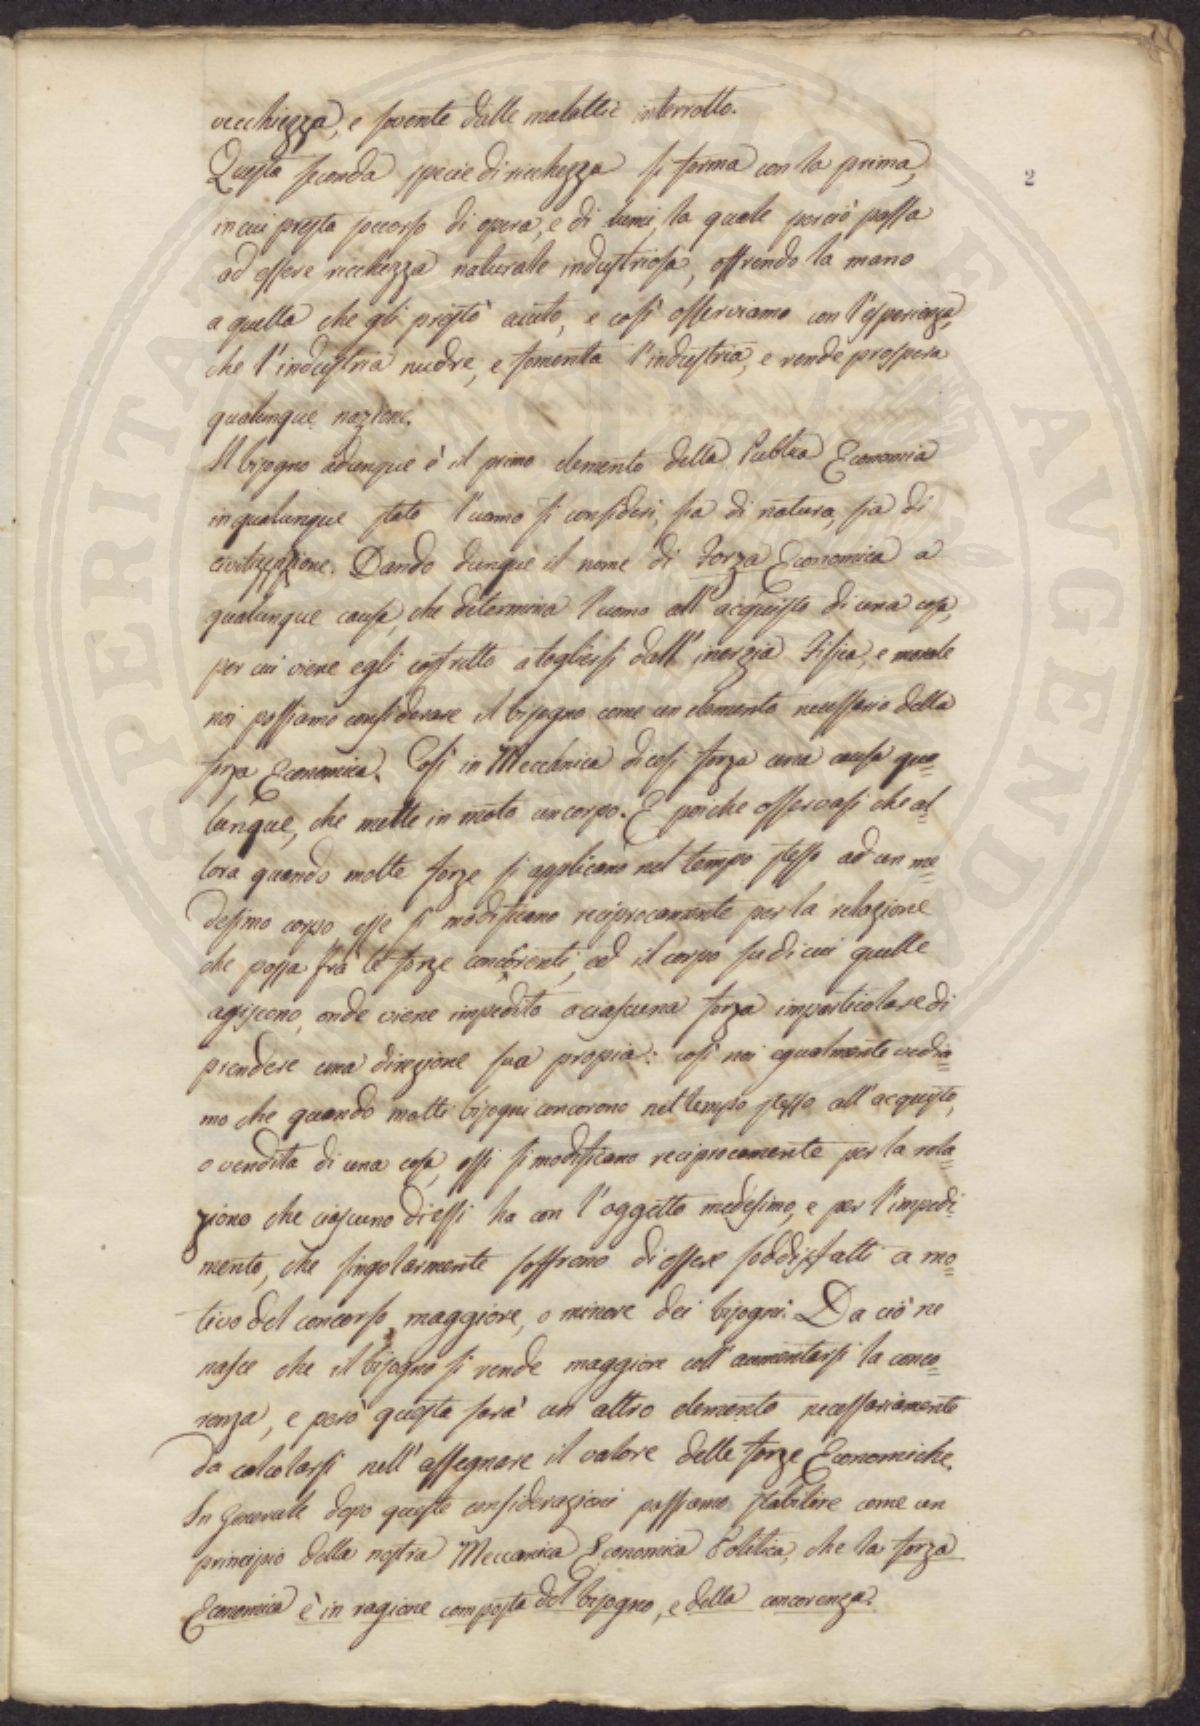 2
vecchiezza, e sovente dalle malattie interrotto.
Questa seconda specie di ricchezza si forma con la prima,
in cui presta soccorso di opera, e di lumi, la quale perciò passa
ad essere ricchezza naturale industriosa, offrendo la mano
a quella che gli prestò aiuto, e così osserviamo con l'esperienza,
che l'industria nudre, e fomenta l'industria, e rende prospera
qualunque nazione.
Il bisogno adunque è il primo elemento della Publica Economia
in qualunque stato l'uomo si consideri, sia di natura, sia di
civilizzazione. Dando dunque il nome di Forza Economica a
qualunque causa, che determina l'uomo all'acquisto di una cosa,
per cui viene egli costretto a togliersi dall'inerzia Fisica, e morale
noi possiamo considerare il bisogno come un elemento necessario della
forza Economica. Così in Meccanica dicesi forza una causa qua=
lunque, che mette in moto un corpo. E poiche osservasi che al=
lora quando molte forze si applicano nel tempo stesso ad un me=
desimo corpo, esse si modificano reciprocamente per la relazione
che passa frà le forze concorrenti, ed il corpo su di cui quelle
agiscono, onde viene impedito a ciascuna forza in particolare di
prendere una direzione sua propia: così noi egualmente vedia=
mo che quando molti bisogni concorono nel tempo stesso all'acquisto,
o vendita di una cosa, essi si modificano reciprocamente per la rela=
zione che ciascuno di essi ha con l'oggetto medesimo, e per l'impedi=
mento, che singolarmente soffrono di essere soddisfatti a mo=
tivo del concorso maggiore, o minore dei bisogni. Da ciò ne
nasce che il bisogno si rende maggiore coll'aumentarsi la conco=
renza, e però questa sarà un altro elemento necessariamente
da calcolarsi nell'assegnare il valore delle forze Economiche.
In Generale dopo queste considerazioni possiamo stabilire come un
principio della nostra Meccanica Economica Politica, che la forza
Economica è in ragione composta del bisogno, e della concorenza.
SPERITATE PUBLICE AVGENDA